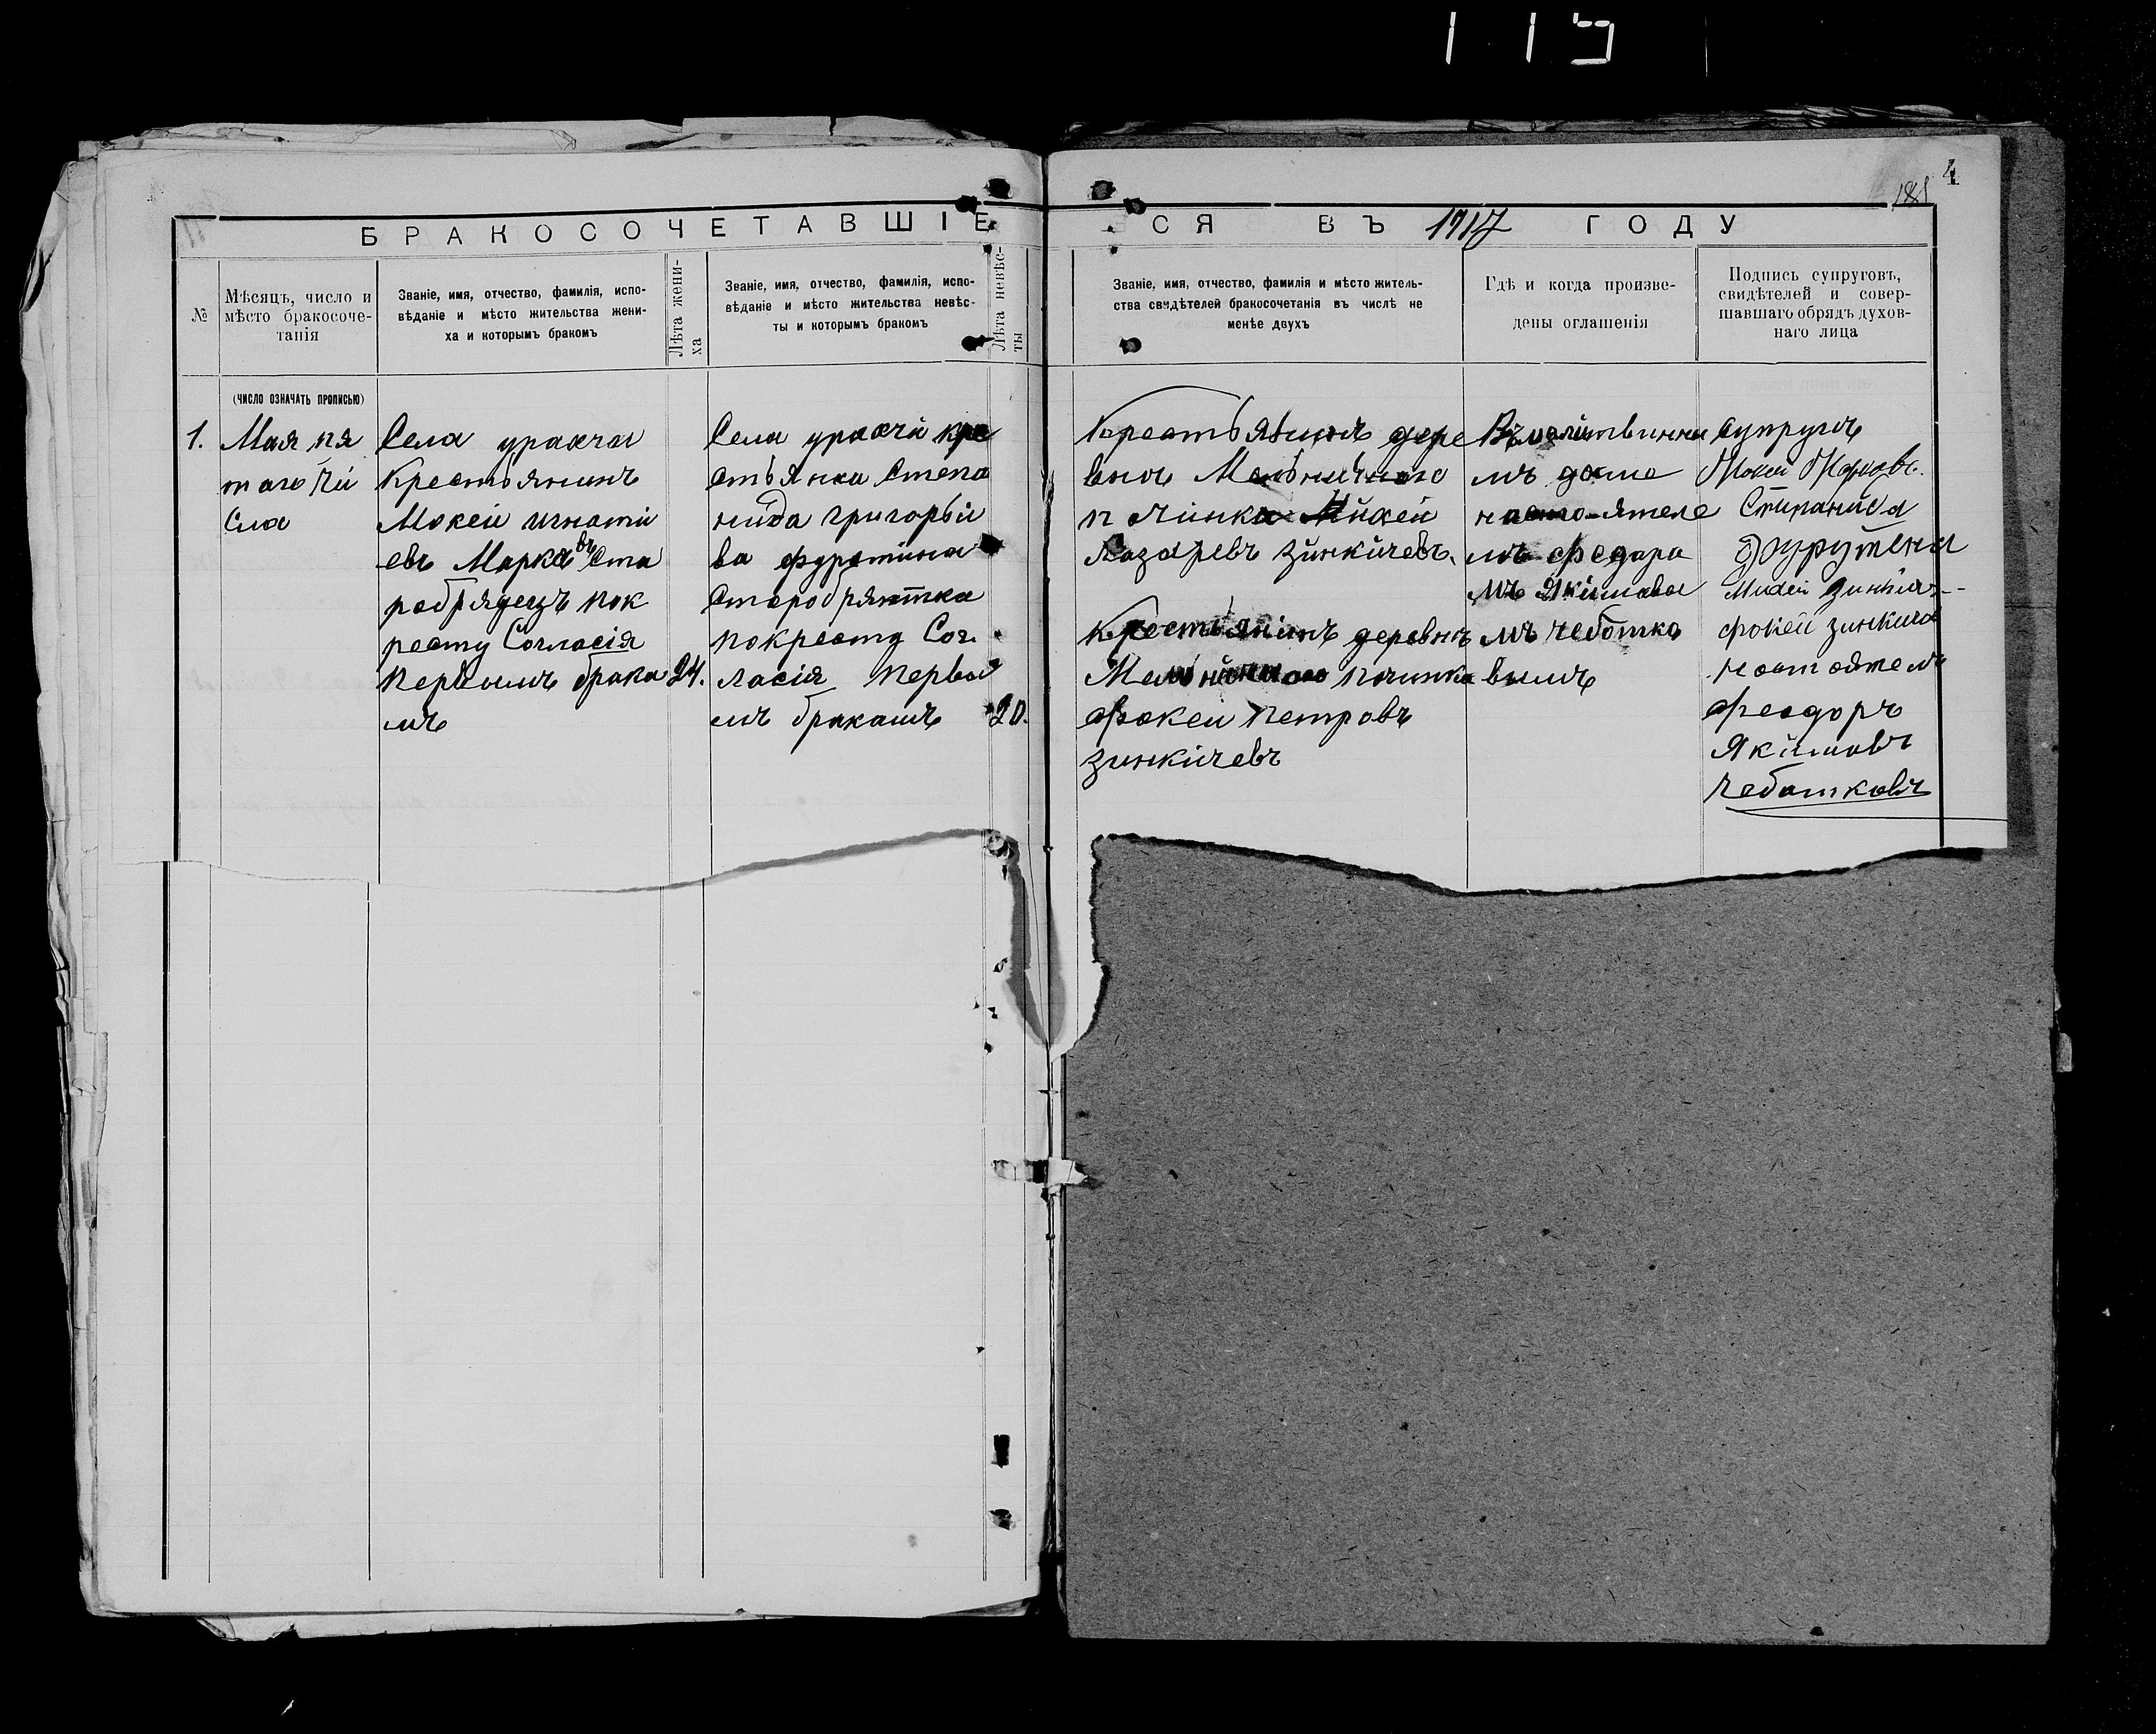 115
4
181
БРАКОСОЧЕТАВШІЕСЯ ВЪ 1917 ГОДУ
№
Мѣсяцъ, число и
мѣсто бракосоче-
танія
Званіе, имя, отчество, фамилія, испо-
вѣданіе и мѣсто жительства жени-
ха и которымъ бракомъ
Лѣта жени-
ха
Званіе, имя, отчество, фамилія, испо-
вѣданіе и мѣсто жительства невѣс-
ты и которымъ бракомъ
Лѣта невѣс-
ты
Званіе, имя, отчество, фамилія и мѣсто житель-
ства свидѣтелей бракосочетанія въ числѣ не
менѣе двухъ
Гдѣ и когда произве-
дены оглашенія
Подпись супруговъ,
свидѣтелей и совер-
шавшаго обрядъ духов-
наго лица
(ЧИСЛО ОЗНАЧАТЬ ПРОПИСЬЮ)
1.
Мая пя
таго Чи
сла
Села ураачи
Крестьянинъ
Мокей игнати
евъ Маркавъ Ста
рабрядецъ пок
ресту Согласія
Первымъ брака
мъ
24.
Села ураачи кре
стьянка Степа
нида григорьи
ва фуротина
Старобрятка
покресту Сог.
ласія первы
мъ бракамъ
20.
Крестьянинъ дере
внъ Мельничнаго
п чинка Михей
Лазаревъ зинкичевъ.
Крестьянинъ деревнъ
Мельничнаго починка
фокей Петровъ
зинкичевъ
Въ малитвинна
мъ даме
насто-ятеле
мъ федара
мъ Якимава
мъ чеботка
вымъ
супругъ
Мокей Марковъ.
Стипанида
Фурутина
Михей зинкич-
фокей зинкичев
настоятель
феодоръ
Якимовъ
Чебатковъ